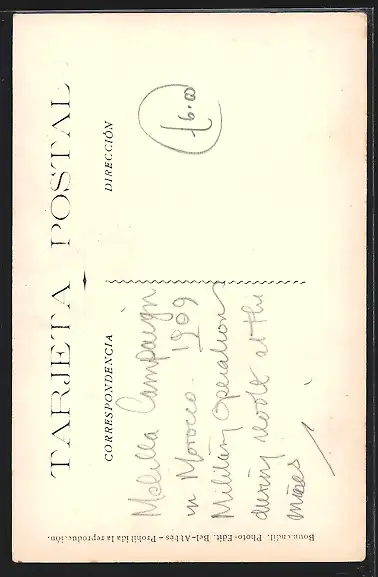 TARJETA POSTAL
CORRESPONDENCIA
DIRECCIÓN
Melilla Campaign
in Morocco. 1909
Military Operation
during revolt at the
mines
£6.00
Photo-Edit. Bel-Abbès - Prohibida la reproducción.